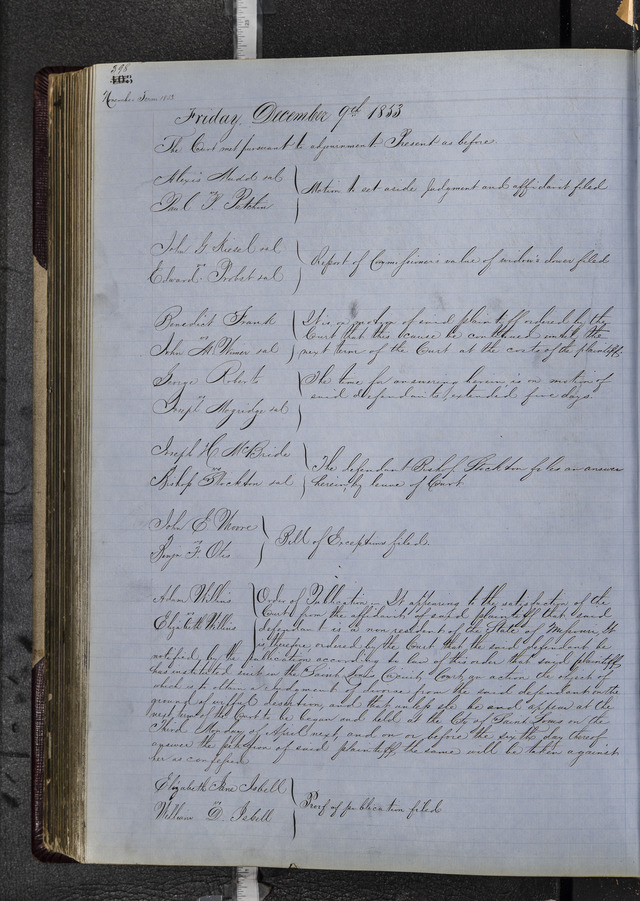 398
403
November Term 1853
Friday, December 9th 1853
The Court met pursuant to adjournment Present as before.
Alexis Mudd et al
vs
Paul F.
Motion to set aside Judgment and affidavit filed
John G. Kiesel et al
vs
Edward Probst et al
Report of Commissioners value of widow's dower filed
Benedict Frank
vs
John M. Wimer et al
It is on motion of said plaintiff ordered by the
Court that this cause be continued until the
next term of the Court at the costs of the plaintiff.
George Roberts
vs
Joseph Mogridge et al
The time for answering herein is on motion of
said defendants, extended five days.
Joseph H. McBride
vs
Bishop Stockton et al
The defendant Bishop Stockton files an answer
herein, by leave of Court.
John E. Moore
vs
F. Otis
Bill of Exceptions filed.
Adam Wilkins
vs
Elizabeth Wilkins
Order of Publication. It appearing to the satisfaction of the
Court from the affidavit of said plaintiff that said
defendant is a non resident of the State of Missouri, It
is therefore ordered by the Court that the said defendant be
notified, by the publication according to law of this order that said plaintiff
has instituted suit in the Saint Louis County Court, an action the object of
which is to obtain a Judgment of divorce from the said defendant on the
ground of wilful desertion, and that unless she be and appear at the
next term of the Court to be begun and held at the City of Saint Louis on the
Third Monday of April next, and on or before the sixth day thereof
answer the petition of said plaintiff, the same will be taken against
her as confessed.
Elizabeth Jane Isbell
vs
William D. Isbell
Proof of publication filed